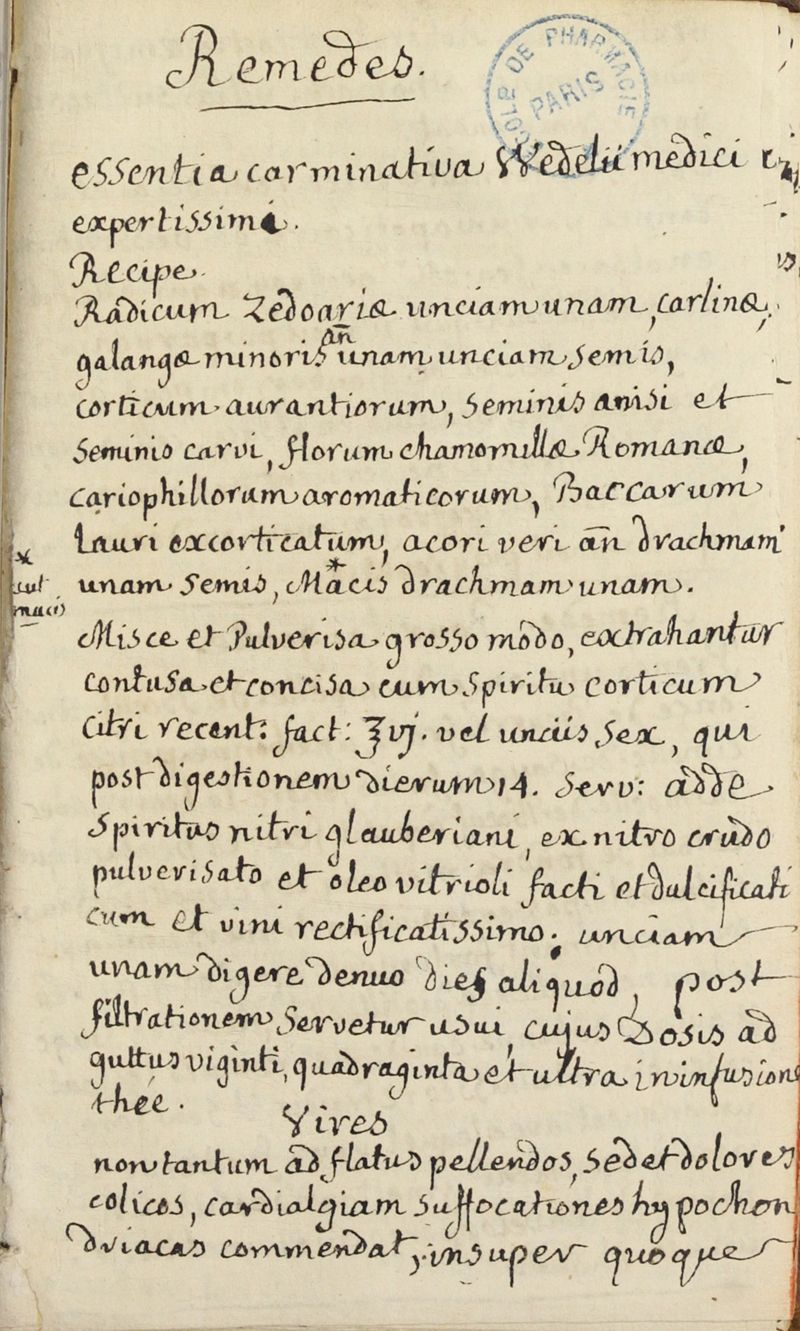 Remedes.
ECOLE DE PHARMACIE
PARIS
essentia carminativa Wedelii medici
expertissimi.
Recipe
Radicum Zedoariæ unciam unam, carlinæ,
galangæ minoris an̄ unam unciam semis,
corticum aurantiorum, seminis anisi et
seminis carvi, florum chamomillæ Romanæ,
cariophillorum aromaticorum, Baccarum
Lauri excorticatum, acori veri an̄ drachmam
unam semis, Macis* drachmam unam.
Misce et Pulverisa grosso modo, extrahantur
contusa et concisa cum Spiritu corticum
Citri recent: fact: ʒvj. vel unciis sex, qui
post digestionem dierum 14. Serv: adde
Spiritus nitri glauberiani, ex nitro crudo
pulverisato et oleo vitrioli facti et dulcificati
cum et vini rectificatissimo. unciam
unam digere denuo dies aliquod, post
filtrationem Servetur usui, cujus Dosis ad
guttus viginti, quadraginta et ultra in infusione
thée.
Vires
non tantum ad flatus pellendos, sed et dolores
colicos, cardialgiam suffocationes hypochon
driacas commendat, insuper quoque